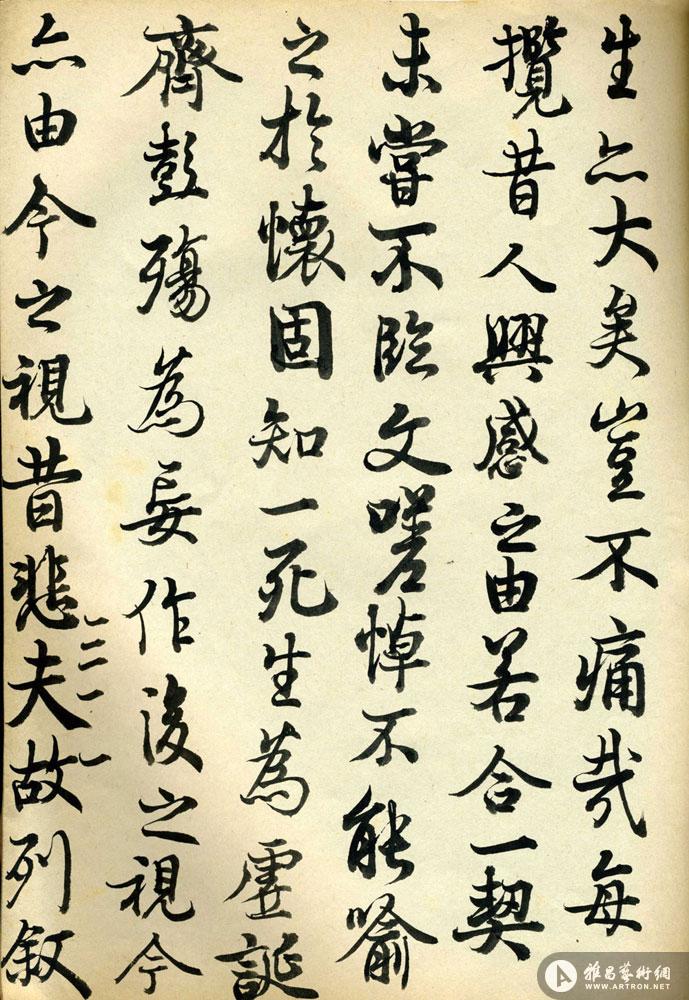 生亦大矣豈不痛哉每
攬昔人興感之由若合一契
未嘗不臨文嗟悼不能喻
之於懷固知一死生為虛誕
齊彭殤為妄作後之視今
亦由今之視昔悲夫故列敘
雅昌藝術網
WWW.ARTRON.NET